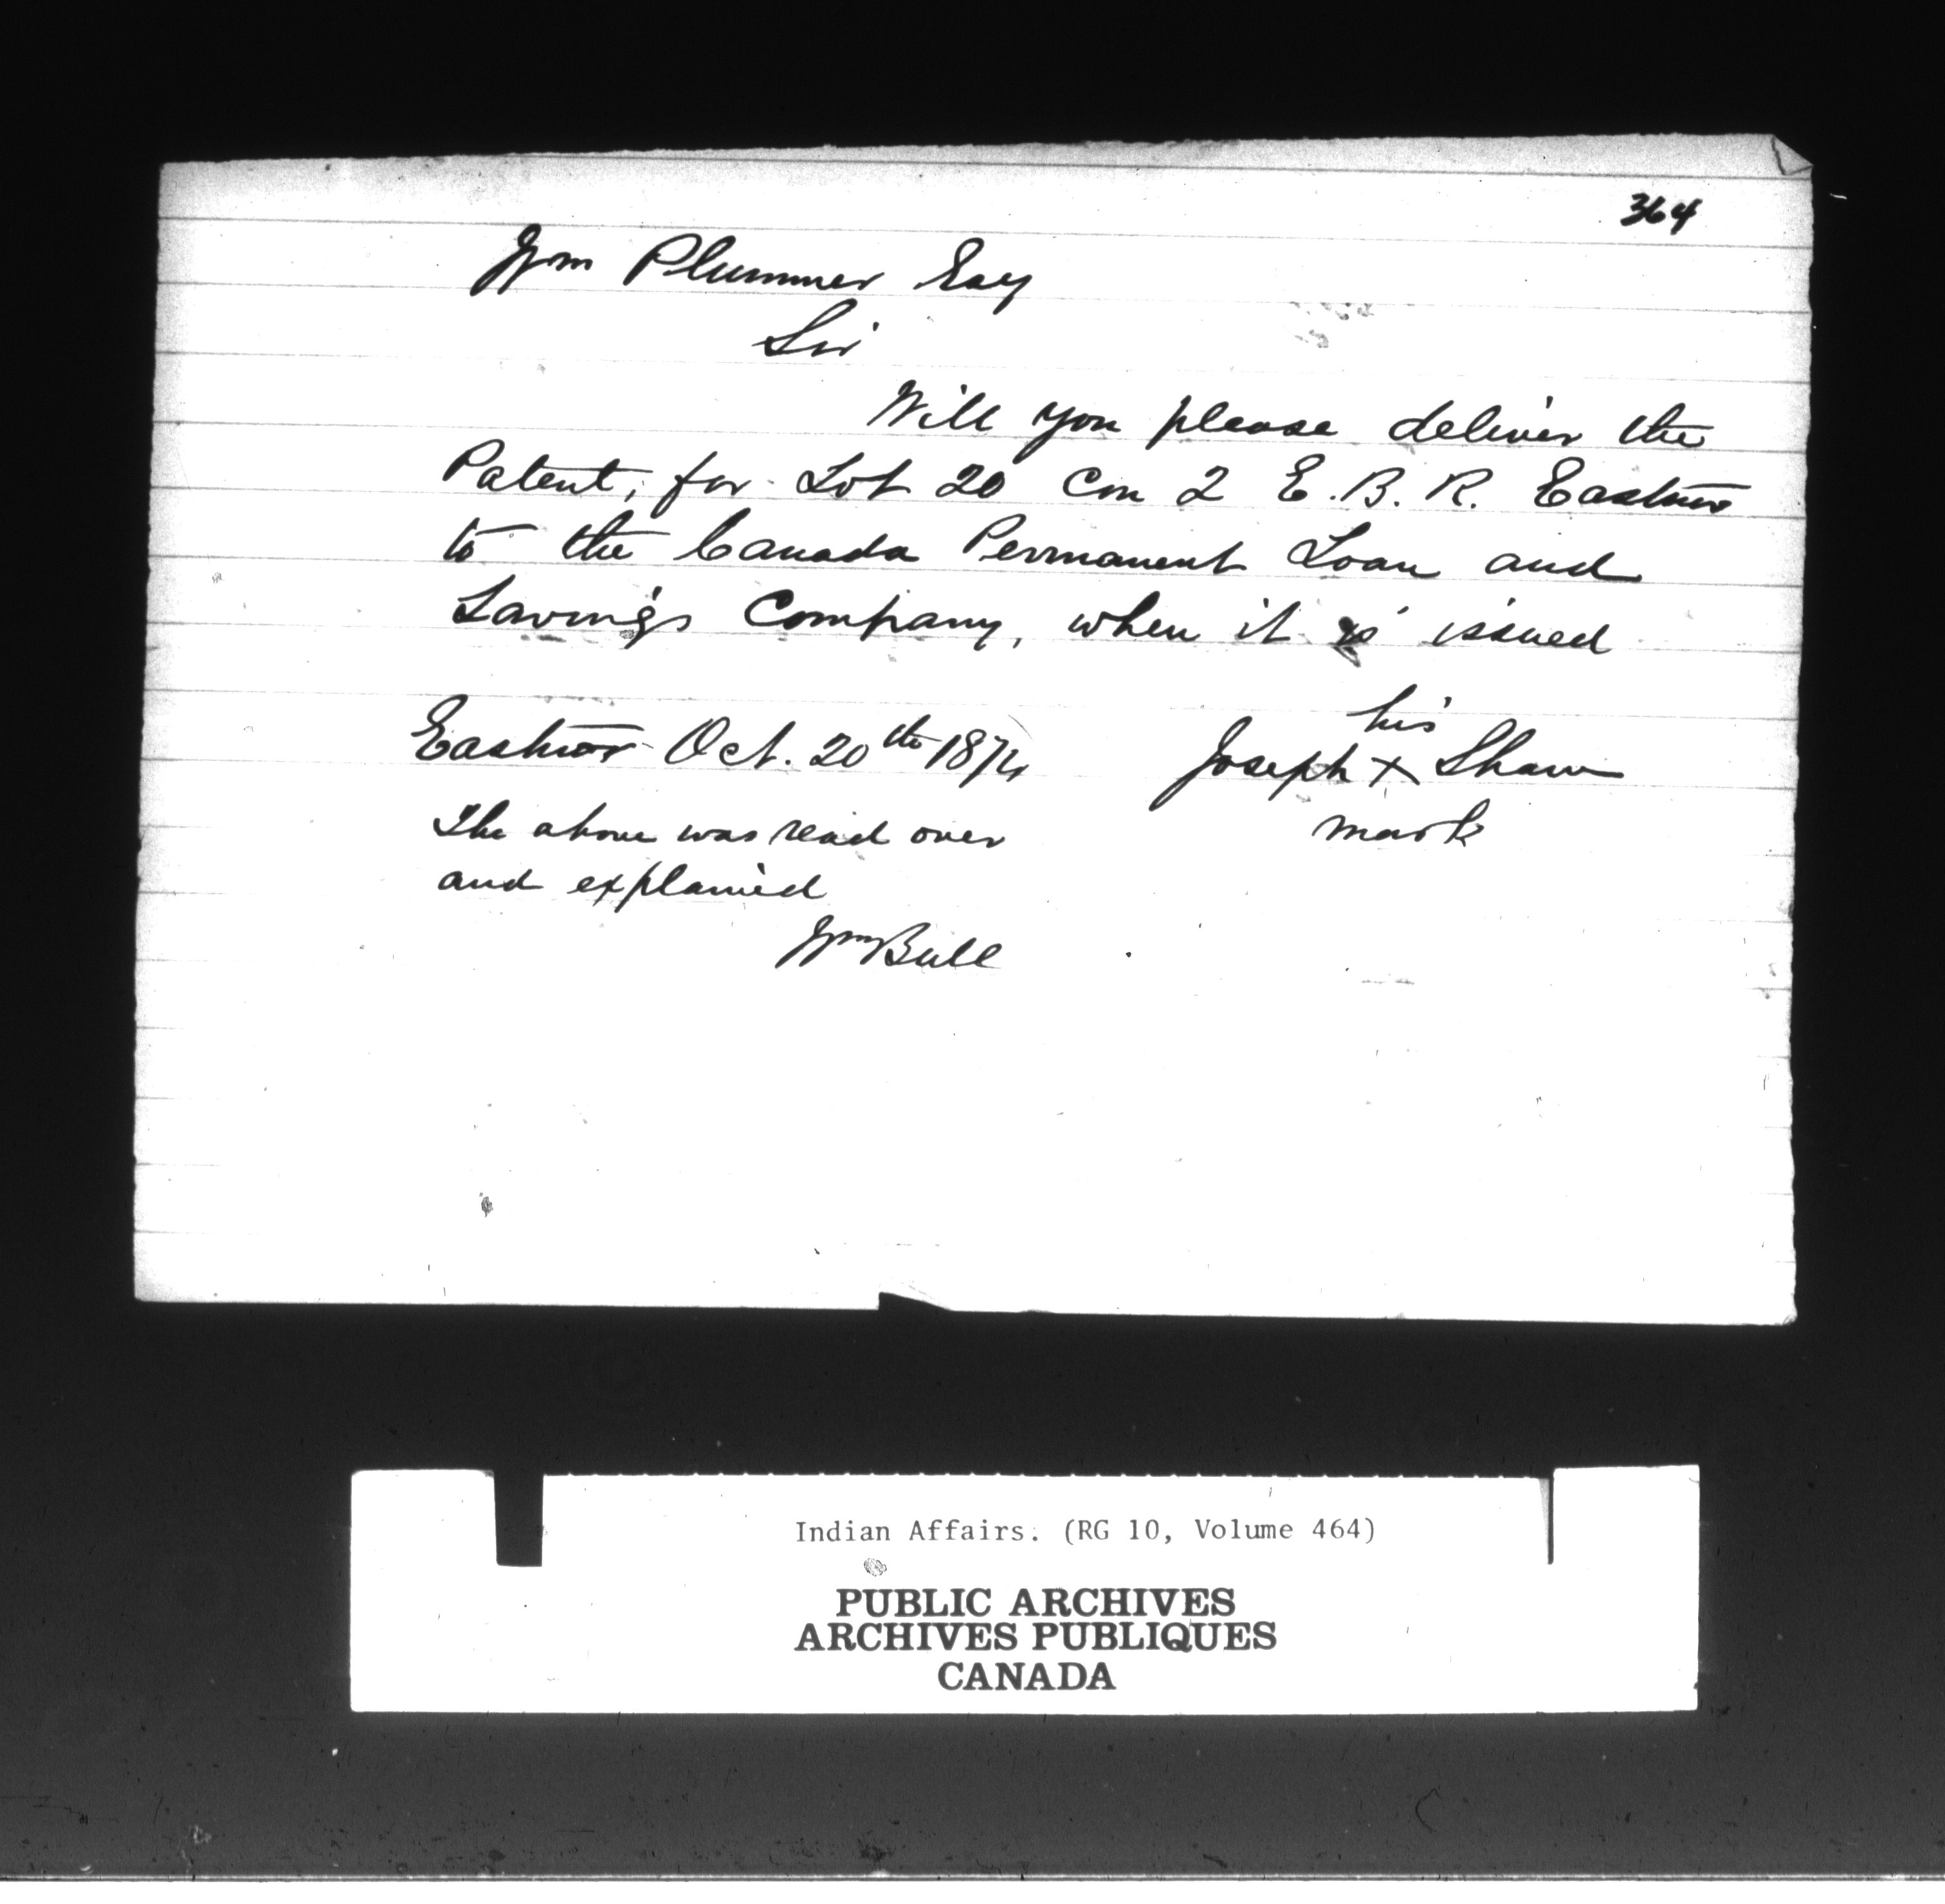 364
Wm Plummer Esq
Sir
Will you please deliver the
Patent, for Lot 20 Con 2 E. B. R. Eastnor
to the Canada Permanent Loan and
Savings Company, when it is issued
his
Eastnor Oct. 20th 1874 Joseph X Shaw
mark
The above was read over
and explained
Wm Bull
Indian Affairs. (RG 10, Volume 464)
PUBLIC ARCHIVES
ARCHIVES PUBLIQUES
CANADA